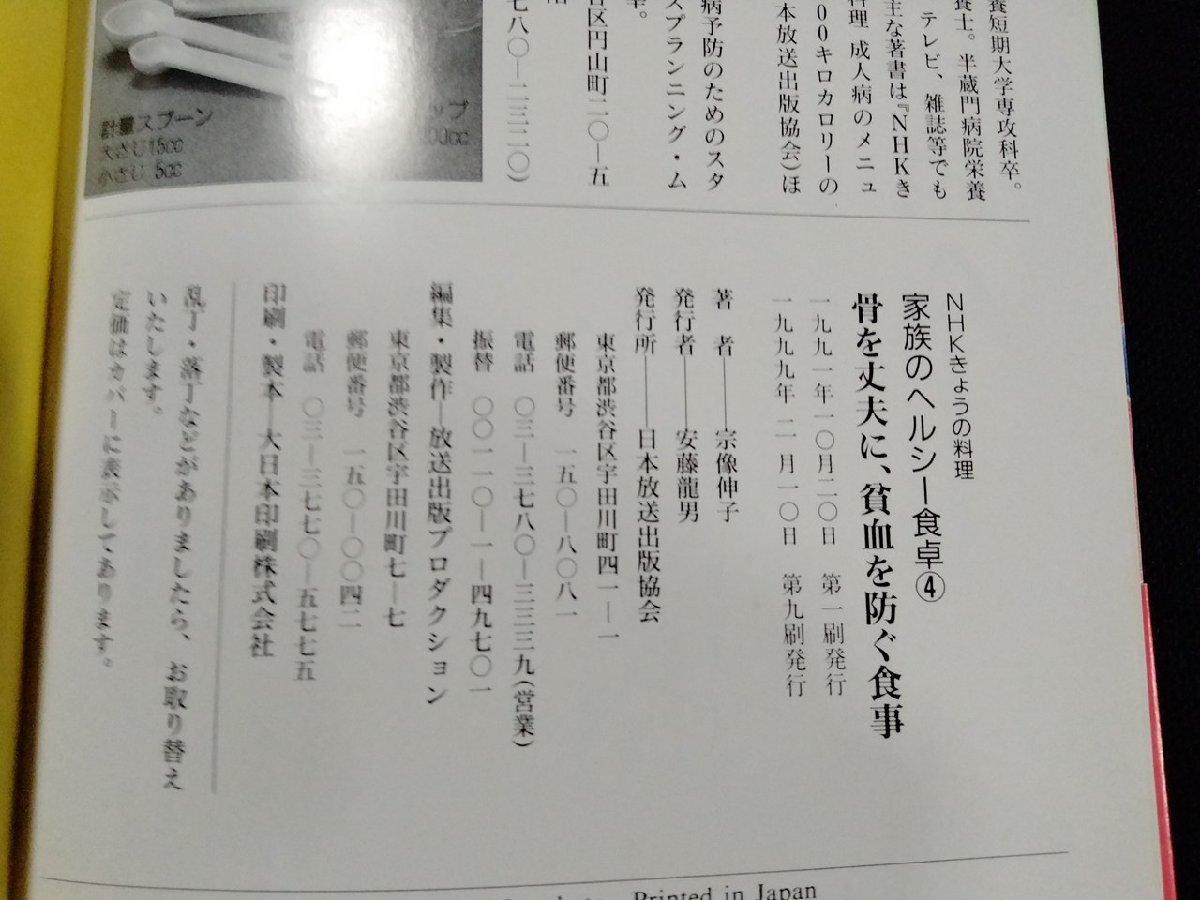 養短期大学専攻科卒。
養士。半蔵門病院栄養
テレビ、雑誌等でも
主な著書は『NHKき
料理 成人病のメニュ
00キロカロリーの
本放送出版協会)ほ
病予防のためのスタ
スプランニング・ム
谷区円山町二〇—五
七八〇—二三二〇)
計量スプーン
大さじ15cc
小さじ 5cc
ップ
00cc
NHKきょうの料理
家族のヘルシー食卓④
骨を丈夫に、貧血を防ぐ食事
一九九一年一〇月二〇日 第一刷発行
一九九九年 二月一〇日 第九刷発行
著 者——宗像伸子
発行者——安藤龍男
発行所——日本放送出版協会
東京都渋谷区宇田川町四一—一
郵便番号 一五〇—八〇八一
電話 〇三—三七八〇—三三三九(営業)
振替 〇〇一一〇—一—四九七〇一
編集・製作—放送出版プロダクション
東京都渋谷区宇田川町七—七
郵便番号 一五〇—〇〇四二
電話 〇三—三七七〇—五七七五
印刷・製本—大日本印刷株式会社
乱丁・落丁などがありましたら、お取り替え
いたします。
定価はカバーに表示してあります。
Printed in Japan